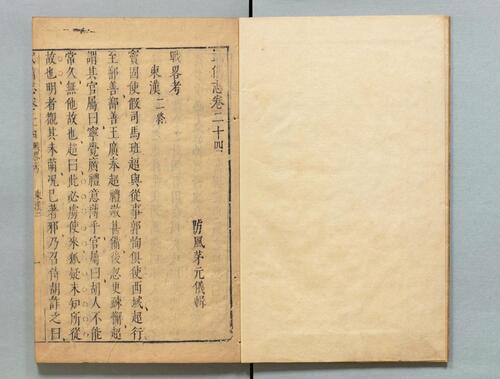 武備志卷二十四
防風茅元儀輯
戰畧考
東漢二
竇固使假司馬班超與從事郭恂俱使西域超行
至鄯善鄯善王廣奉超禮敬甚備後忽更踈懈超
謂其官屬曰寧覺廣禮意薄乎官屬曰胡人不能
常久無他故也超曰此必虜使來狐疑未知所從
故也明者覩其未萌况已著邪乃召侍胡詐之曰